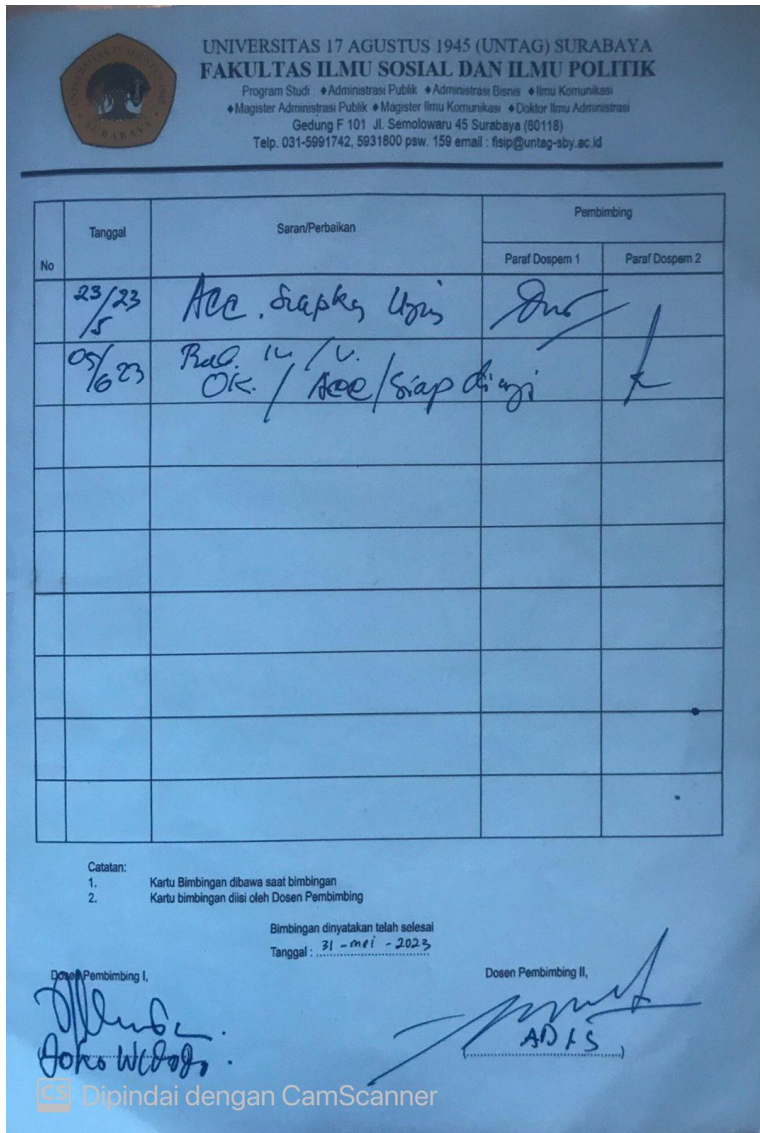 UNIVERSITAS 17 AGUSTUS 1945 (UNTAG) SURABAYA
FAKULTAS ILMU SOSIAL DAN ILMU POLITIK
Program Studi : ♦Administrasi Publik ♦Administrasi Bisnis ♦Ilmu Komunikasi
♦Magister Administrasi Publik ♦Magister Ilmu Komunikasi ♦Doktor Ilmu Administrasi
Gedung F 101 Jl. Semolowaru 45 Surabaya (60118)
Telp. 031-5991742, 5931800 psw. 159 email : fisip@untag-sby.ac.id
No Tanggal Saran/Perbaikan Pembimbing
Paraf Dospem 1 Paraf Dospem 2
23/23 Acc. Siapkan Ujian
/5
05/ Bab. IV / V.
/6 23 OK. / Acc/siap diuji
Catatan:
1. Kartu Bimbingan dibawa saat bimbingan
2. Kartu bimbingan diisi oleh Dosen Pembimbing
Bimbingan dinyatakan telah selesai
Tanggal : 31 - mei - 2023
Dosen Pembimbing I, Dosen Pembimbing II,
Joko Widodo. (ADI S)
CS Dipindai dengan CamScanner